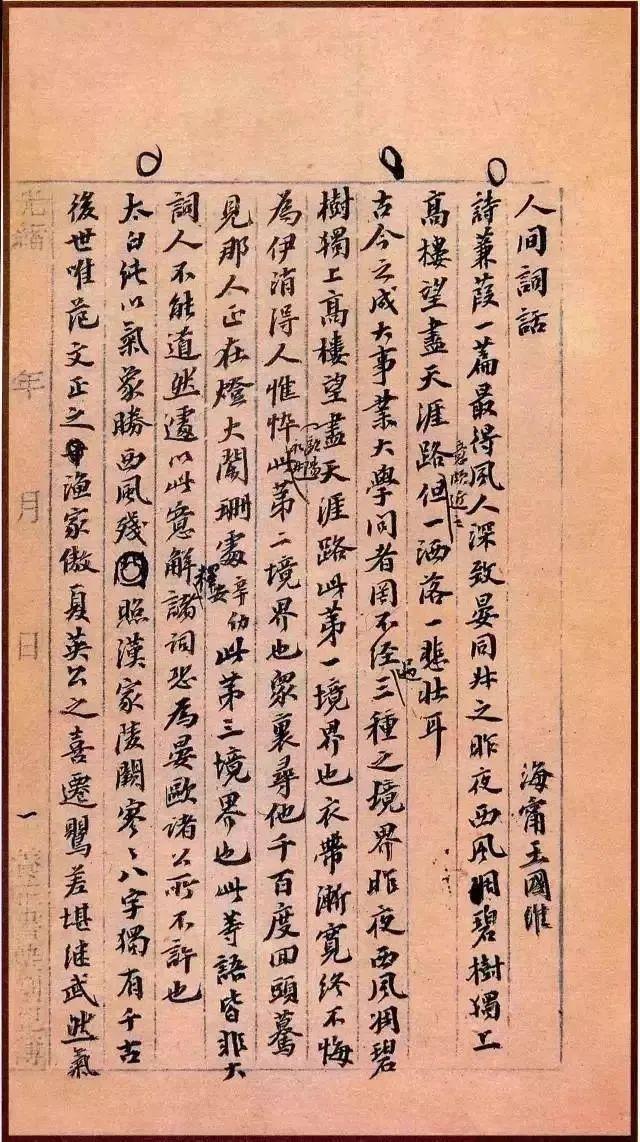 人间詞話
海甯王國維
詩蒹葭一篇最得風人深致晏同叔之昨夜西風凋碧樹獨上
高樓望盡天涯路意頗近之但一洒落一悲壯耳
古今之成大事業大學問者罔不經過三種之境界昨夜西風凋碧
樹獨上高樓望盡天涯路此第一境界也衣帶漸寬終不悔
為伊消得人憔悴此第二境界也衆裏尋他千百度回頭驀
見那人正在燈火闌珊處辛幼安此第三境界也此等語皆非大
詞人不能道然遽以此意解釋諸詞恐為晏歐諸公所不許也
太白純以氣象勝西風殘照漢家陵闕寥寥八字獨有千古
後世唯范文正之漁家傲夏英公之喜遷鶯差堪继武然氣
光緒 年 月 日
一